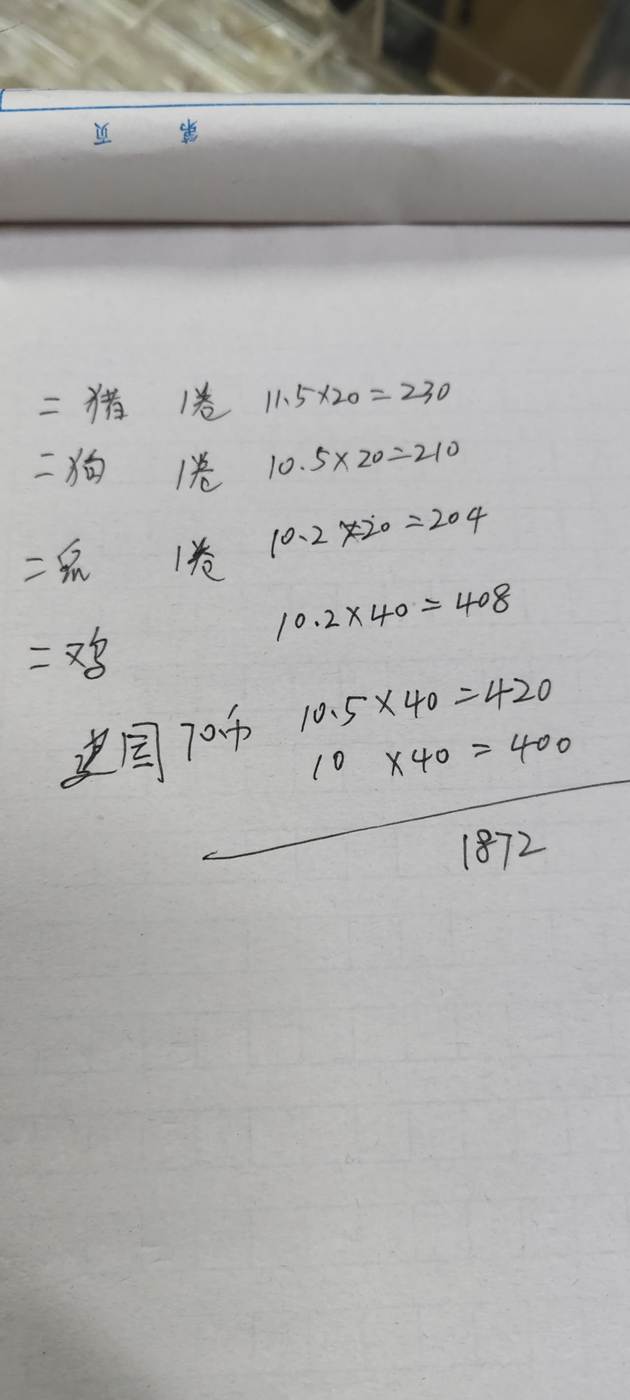 第 页
二猪 1卷 11.5×20=230
二狗 1卷 10.5×20=210
二鼠 1卷 10.2×20=204
二鸡 10.2×40=408
建国70币 10.5×40=420
10×40=400
1872